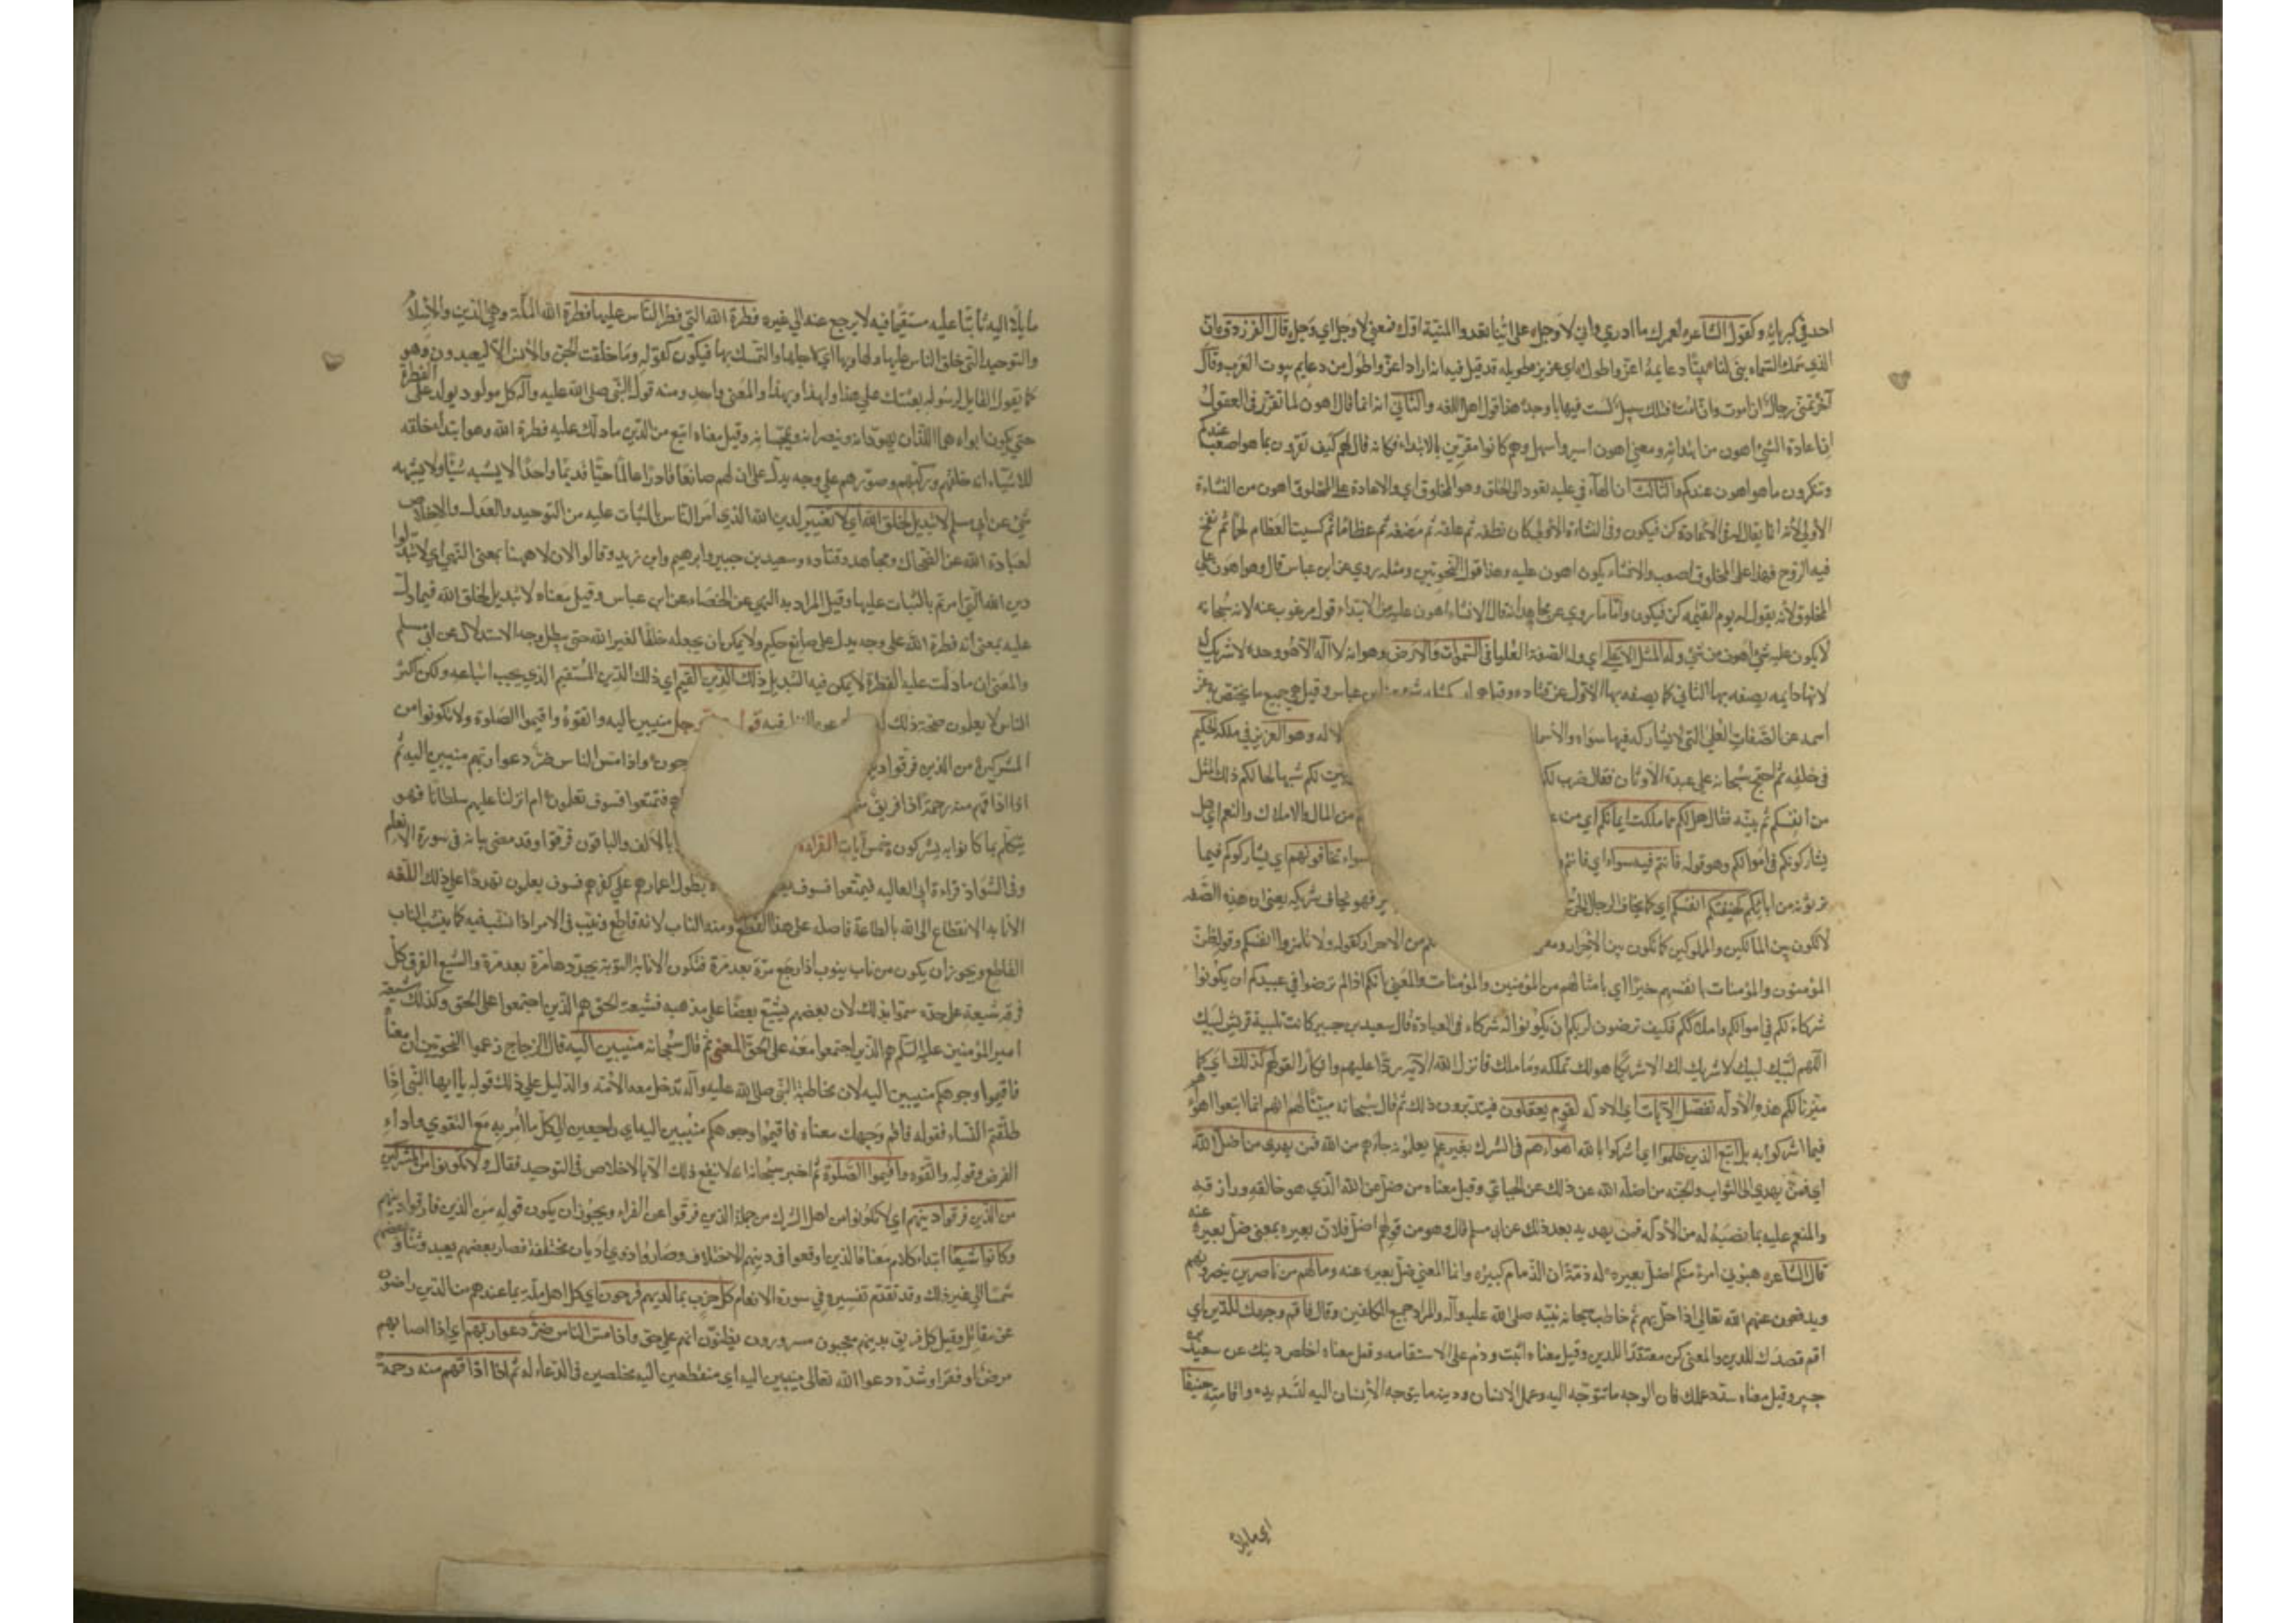 احد في كبريائه وكقول الشاعر لعمرك ما ادري واني لاوجل على اينا تغدوا المنية اول فمعنى لاوجل اي وجل وقال الفرزدق ان
الذي سمك السماء بنى لنا بيتا دعايمه اعز واطول اي عزيز طويله قد قيل فيه انه اراد اعز واطول من دعايم بيوت العرب وقال
آخر تمنى رجال ان اموت وان امت فتلك سبيل لست فيها باوحد هذا قول اهل اللغه والثاني انه انما قال اهون لما تقرر في العقول
ان اعادة الشئ اهون من ابتدائه ومعنى اهون ايسر واسهل وهم كانوا مقرين بالابتداء فكانه قال لهم كيف تقرون بما هو اصعب عندكم
وتنكرون ما هو اهون عندكم والثالث ان الهاء في عليه تعود الى الخلق وهو المخلوق اي والاعادة على المخلوق اهون من النشاءة
الاولى لانه انما يقال له في الاعادة كن فيكون وفي النشاءة الاولى كان نطفه ثم علقه ثم مضغه ثم عظاما ثم كسيت العظام لحما ثم نفخ
فيه الروح فهذا على المخلوق اصعب والانشاء يكون اهون عليه وهذا قول النحويين ومثله يروى عن ابن عباس قال وهو اهون على
المخلوق لانه يقول له يوم القيمه كن فيكون واما ما روي عن مجاهد انه قال الانشاء اهون عليه من الابتداء فقول مرغوب عنه لانه سبحانه
لا يكون عليه شئ اهون من شئ وله المثل الاعلى اي وله الصفة العليا في السموات والارض وهو انه لا اله الا هو وحده لا شريك له
لانها دايمه يصفه بها الثاني كما يصفه بها الاول عن قتاده وقيل هي ليس كمثله شئ عن ابن عباس وقيل هي جميع ما يختص به عز
اسمه عن الصفات العلى التي لا يشاركه فيها سواه والاسما لاله وهو العزيز في ملكه الحكيم
في خلقه ثم احتج سبحانه على عبدة الاوثان فقال ضرب لكم بين لكم شبها لحالكم ذلك المثل
من انفسكم ثم بينه فقال هل لكم مما ملكت ايمانكم اي من من المال والاملاك والنعم اي هل
يشاركونكم في اموالكم وهو قوله فانتم فيه سواء اي فانتم سواء تخافونهم اي يشاركوكم فيما
ترثونه من ابائكم كخيفتكم انفسكم اي كما يخاف الرجل الحر فهو يخاف شريكه يعني ان هذه الصفه
لا تكون بين المالكين والمملوكين كما تكون بين الاحرار من الاحرار كقوله ولا تلمزوا انفسكم وقوله ظن
المؤمنون والمؤمنات بانفسهم خيرا اي بامثالهم من المؤمنين والمؤمنات والمعنى انكم اذا لم ترضوا في عبيدكم ان يكونوا
شركاء لكم في اموالكم واملاككم فكيف ترضون لربكم ان يكونوا له شركاء في العبادة قال سعيد بن جبير كانت تلبية قريش لبيك
اللهم لبيك لبيك لا شريك لك الا شريكا هو لك تملكه وما ملك فانزل الله الآية ردا عليهم وانكارا لقولهم كذلك اي كما
ميزنا لكم هذه الادله نفصل الآيات اي الادله لقوم يعقلون فيتدبرون ذلك ثم قال سبحانه مبينا لهم انهم انما اتبعوا اهواءهم
فيما اشركوا به بل اتبع الذين ظلموا اي اشركوا بالله اهواءهم في الشرك بغير علم يعلمونه جاءهم من الله فمن يهدي من اضل الله
اي فمن يهدي الى الثواب والجنه من اضله الله عن ذلك عن الجبائي وقيل معناه من ضل عن الله الذي هو خالقه ورازقه
والمنعم عليه بما نصبه له من الادله فمن يهديه بعد ذلك عن ابي مسلم قال وهو من قولهم اضل فلان بعيره بمعنى ضل بعيره عنه
قال الشاعر هبوني امرءا منكم اضل بعيره له ذمة ان الذمام كبيره وانما المعنى ضل بعيره عنه وما لهم من ناصرين ينصرونهم
ويدفعون عنهم الله تعالى اذا حل بهم ثم خاطب سبحانه نبيه صلى الله عليه وآله والمراد جميع المكلفين وقال فاقم وجهك للدين اي
اقم قصدك للدين والمعنى كن معتقدا للدين وقيل معناه اثبت ودم على الاستقامه وقيل معناه اخلص دينك عن سعيد بن
جبير وقيل معناه سدد عملك فان الوجه ما تتوجه اليه وعمل الانسان ودينه ما يتوجه الانسان اليه لتشديده واقامته حنيفا
اي مايلا
مايلا اليه ثابتا عليه مستقيما فيه لا يرجع عنه الى غيره فطرة الله التي فطر الناس عليها فطرة الله الملة وهي الدين والاسلام
والتوحيد التي خلق الناس عليها ولها وبها اي لاجلها والتمسك بها فيكون كقوله وما خلقت الجن والانس الا ليعبدون وهو
كما يقول القايل لرسوله بعثتك على هذا ولهذا وبهذا والمعنى واحد ومنه قول النبي صلى الله عليه وآله كل مولود يولد على الفطرة
حتى يكون ابواه هما اللذان يهودانه وينصرانه ويمجسانه وقيل معناه اتبع من الدين ما دلك عليه فطرة الله وهو ابتداء خلقه
للاشياء لانه خلقهم وركبهم وصورهم على وجه يدل على ان لهم صانعا قادرا عالما حيا قديما واحدا لا يشبه شيئا ولا يشبهه
شئ عن ابي مسلم لا تبديل لخلق الله اي لا تغيير لدين الله الذي امر الناس بالثبات عليه من التوحيد والعدل والاخلاص
لعبادة الله عن الضحاك ومجاهد وقتاده وسعيد بن جبير وابراهيم وابن زيد وقالوا الان لا ههنا بمعنى النهي اي لا تبدلوا
دين الله التي امرتم بالثبات عليها وقيل المراد به النهي عن الخصاء عن ابن عباس وقيل معناه لا تبديل لخلق الله فيما دل
عليه بمعنى انه فطرة الله على وجه يدل على صانع حكيم ولا يمكن ان يجعله خلقا لغير الله حتى يبطل وجه الاستدلال عن ابي مسلم
والمعنى ان ما دلت عليه الفطرة لا يمكن فيه التبديل ذلك الدين القيم اي ذلك الدين المستقيم الذي يجب اتباعه ولكن اكثر
الناس لا يعلمون صحة ذلك منيبين اليه واتقوه واقيموا الصلوة ولا تكونوا من
المشركين من الذين فرقوا دينهم واذا مس الناس ضر دعوا ربهم منيبين اليه ثم
اذا اذاقهم منه رحمة اذا فريق منهم فتمتعوا فسوف تعلمون ام انزلنا عليهم سلطانا فهو
يتكلم بما كانوا به يشركون خمس آيات القراءة بالالف والباقون فرقوا وقد مضى بيانه في سورة الانعام
وفي الشواذ قراءة ابي العاليه فيمتعوا فسوف يطول اعمارهم على كفرهم فسوف يعلمون تهددا على ذلك اللغه
الانابه الانقطاع الى الله بالطاعة فاصله على هذا القطع ومنه الناب لانه قاطع وينيب في الامر اذا نشب فيه كما ينشب الناب
القاطع ويجوز ان يكون من ناب ينوب اذا رجع مرة بعد مرة فتكون الانابة التوبة يجددها مرة بعد مرة والشيع الفرق كل
فرقه شيعة على حده سموا بذلك لان بعضهم يشيع بعضا على مذهبه فشيعة الحق هم الذين اجتمعوا على الحق وكذلك شيعة
امير المؤمنين عليه السلام هم الذين اجتمعوا معه على الحق المعنى ثم قال سبحانه منيبين اليه قال الزجاج زعموا النحويين ان معناه
فاقيموا وجوهكم منيبين اليه لان مخاطبة النبي صلى الله عليه وآله تدخل معه الامه والدليل على ذلك قوله يا ايها النبي اذا
طلقتم النساء فقوله فاقم وجهك معناه فاقيموا وجوهكم منيبين اليه اي راجعين الى كل ما امر به مع التقوى واداء
الفرض وقوله واتقوه واقيموا الصلوة ثم اخبر سبحانه انه لا ينفع ذلك الا بالاخلاص في التوحيد فقال ولا تكونوا من المشركين
من الذين فرقوا دينهم اي لا تكونوا من اهل الشرك من جملة الذين فرقوا عن الفراء ويجوز ان يكون قوله من الذين فارقوا دينهم
وكانوا شيعا ابتداء كلام معناه الذين اوقعوا في دينهم الاختلاف وصاروا ذوي اديان مختلفة فصار بعضهم يعبد وثنا وبعضهم
شمسا الى غير ذلك وقد تقدم تفسيره في سورة الانعام كل حزب بما لديهم فرحون اي كل اهل ملة بما عندهم من الدين راضون
عن مقاتل وقيل كل فريق بدينهم معجبون مسرورون يظنون انهم على حق واذا مس الناس ضر دعوا ربهم اي اذا اصابهم
مرض او فقر او شده دعوا الله تعالى منيبين اليه اي منقطعين اليه مخلصين في الدعاء له ثم اذا اذاقهم منه رحمة